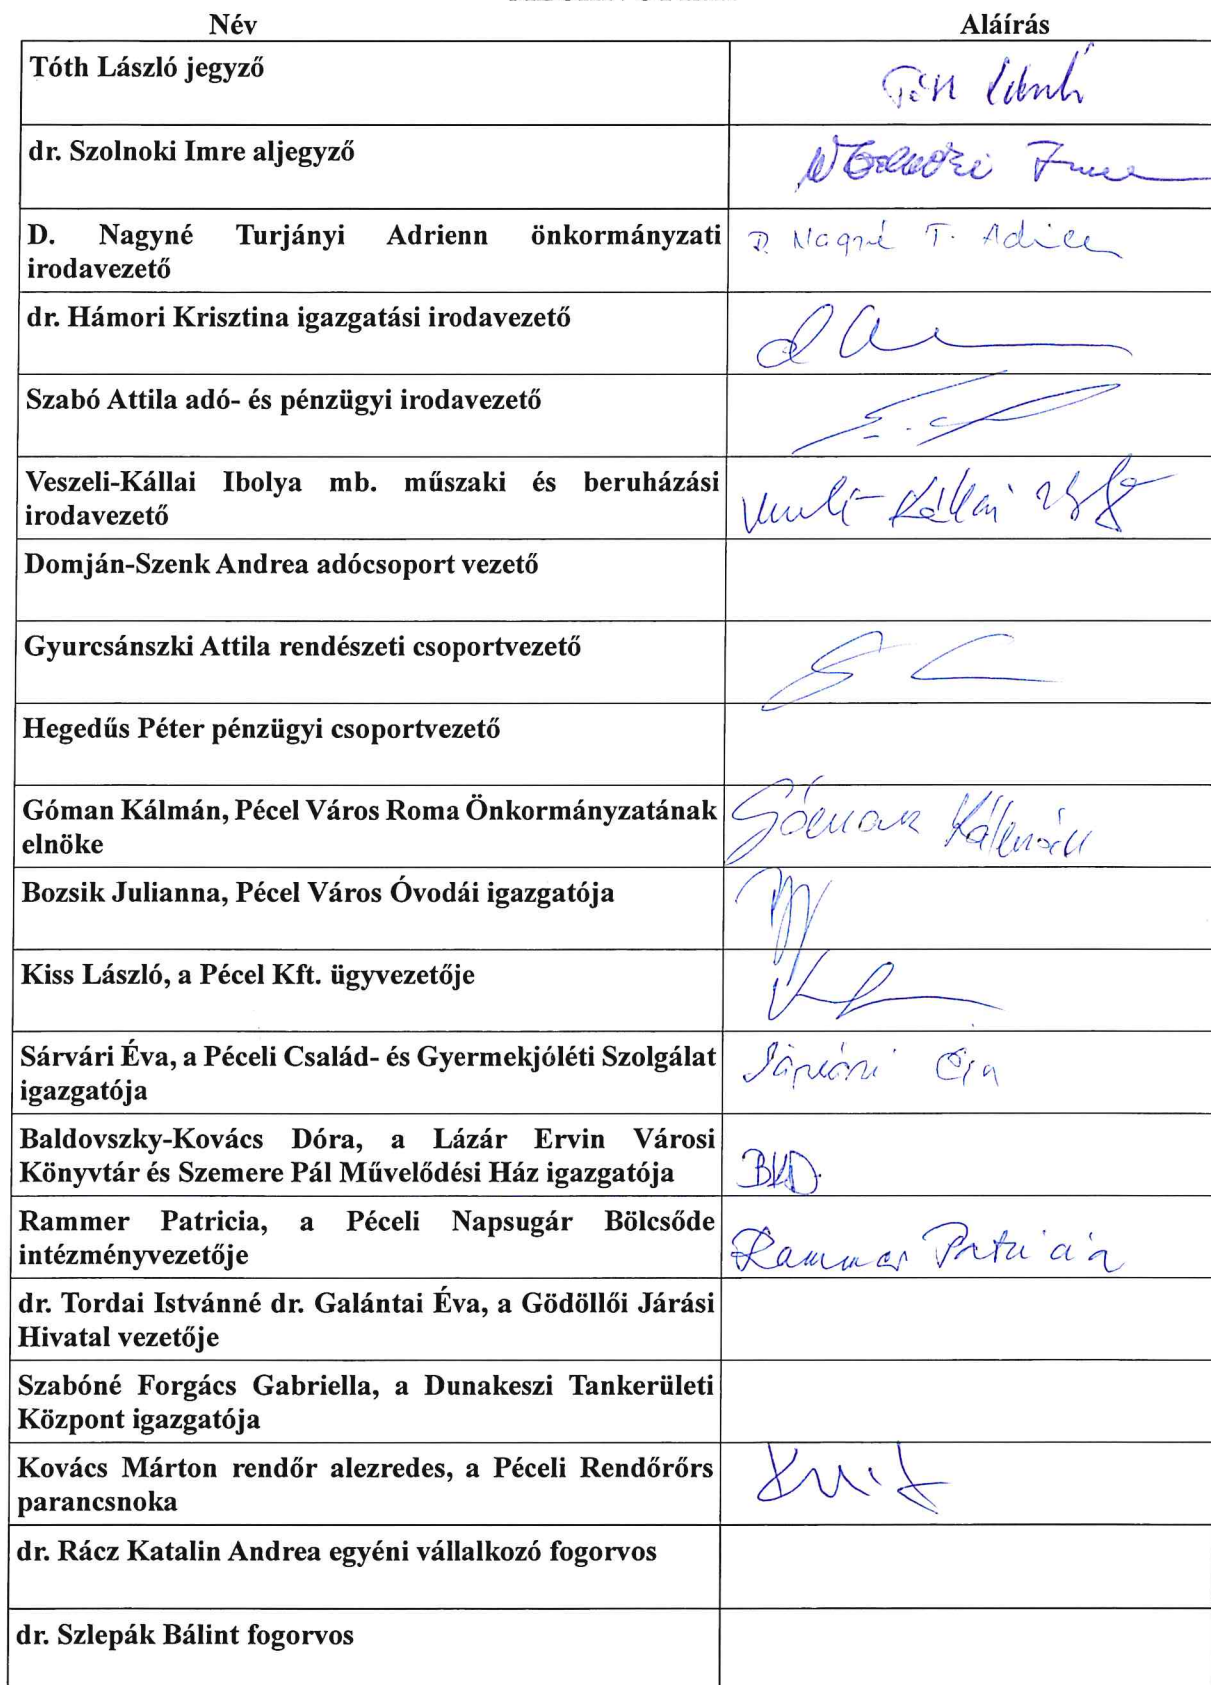 Név Aláírás
Tóth László jegyző
Tóth László
dr. Szolnoki Imre aljegyző
Szolnoki Imre
D. Nagyné Turjányi Adrienn önkormányzati
irodavezető
D. Nagyné T. Adrienn
dr. Hámori Krisztina igazgatási irodavezető
Szabó Attila adó- és pénzügyi irodavezető
Veszeli-Kállai Ibolya mb. műszaki és beruházási
irodavezető
Veszeli-Kállai
Domján-Szenk Andrea adócsoport vezető
Gyurcsánszki Attila rendészeti csoportvezető
Hegedűs Péter pénzügyi csoportvezető
Góman Kálmán, Pécel Város Roma Önkormányzatának
elnöke
Góman Kálmán
Bozsik Julianna, Pécel Város Óvodái igazgatója
Kiss László, a Pécel Kft. ügyvezetője
Sárvári Éva, a Péceli Család- és Gyermekjóléti Szolgálat
igazgatója
Sárvári Éva
Baldovszky-Kovács Dóra, a Lázár Ervin Városi
Könyvtár és Szemere Pál Művelődési Ház igazgatója
BKD.
Rammer Patricia, a Péceli Napsugár Bölcsőde
intézményvezetője
Rammer Patricia
dr. Tordai Istvánné dr. Galántai Éva, a Gödöllői Járási
Hivatal vezetője
Szabóné Forgács Gabriella, a Dunakeszi Tankerületi
Központ igazgatója
Kovács Márton rendőr alezredes, a Péceli Rendőrőrs
parancsnoka
dr. Rácz Katalin Andrea egyéni vállalkozó fogorvos
dr. Szlepák Bálint fogorvos